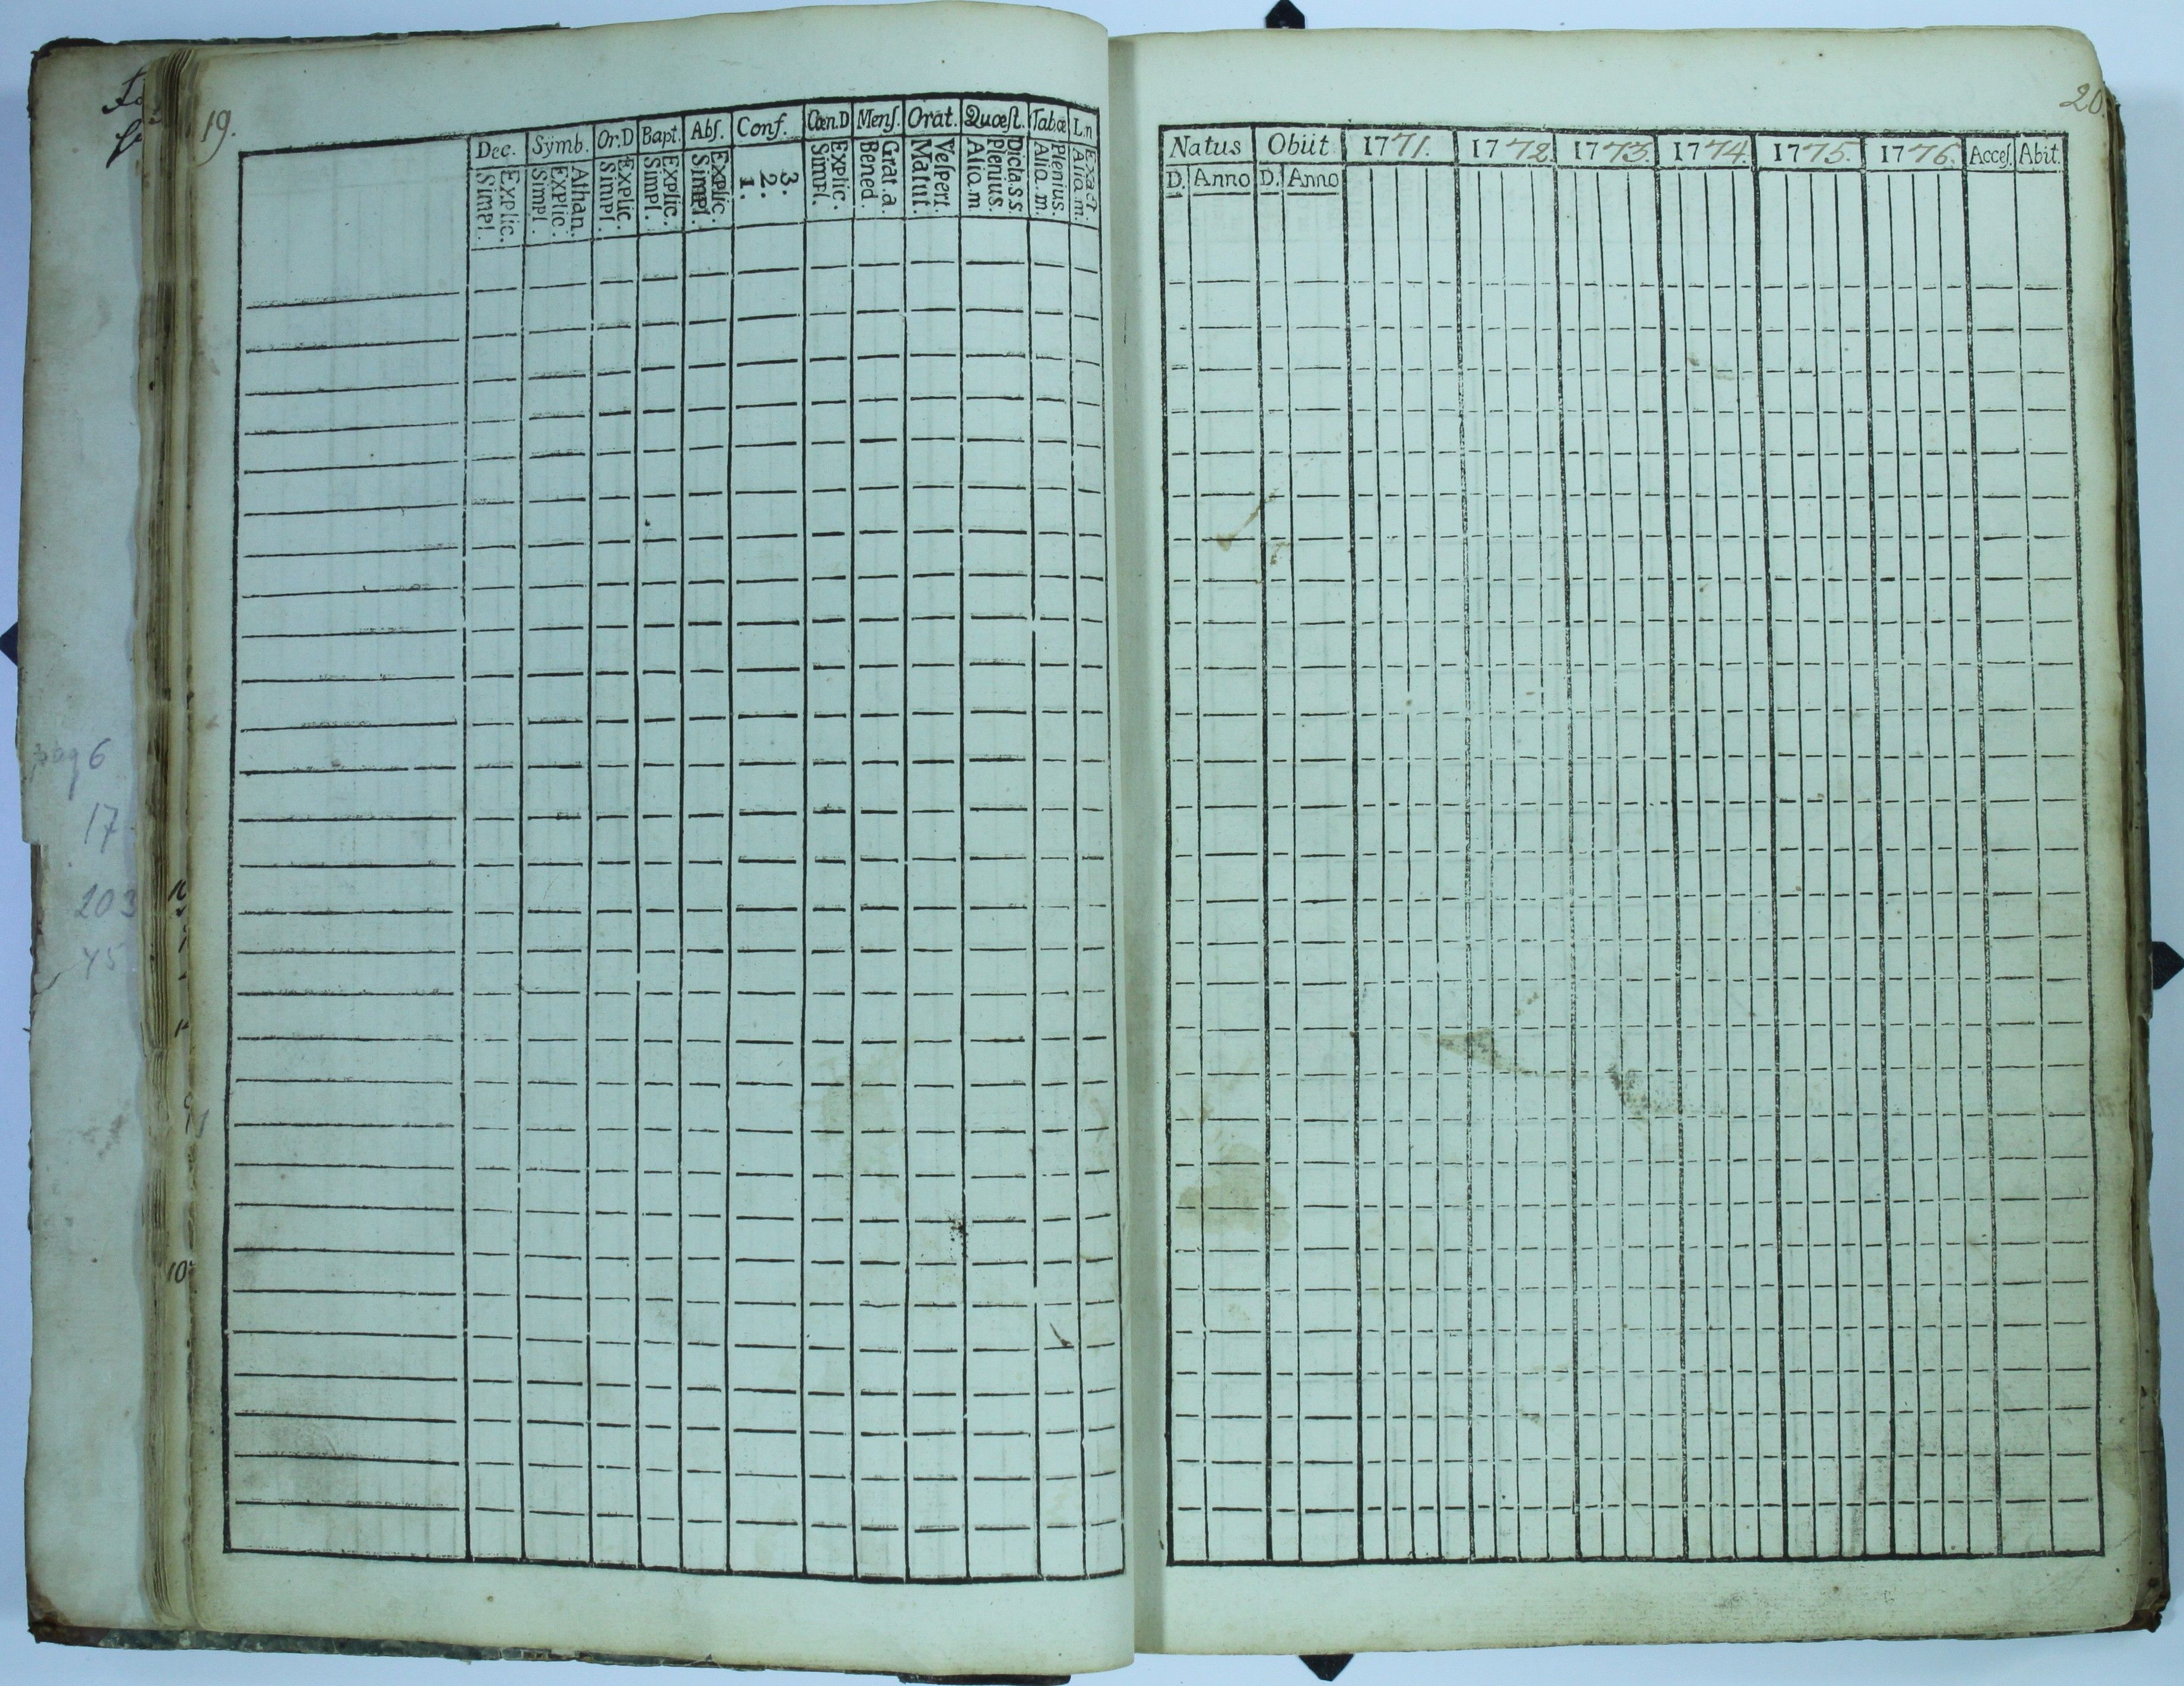 19.
Dec. Sÿmb. Or.D Bapt. Abſ. Conf. Cœn.D Menſ. Orat. Quœſt. Tab.œ L.n
Explic. Simpl.
Athan. Explic. Simpl.
Explic. Simpl.
Explic. Simpl.
Explic. Simpl.
3. 2. 1.
Explic. Simpl.
Grat.a. Bened.
Veſpert. Matut.
Dicla.S.S. Plenius. Aliq.m.
Plenius. Aliq.m.
Exact. Aliq.m.
pag 6
17
203
45
10
20.
Natus Obiit 1771. 1772. 1773. 1774. 1775. 1776. Acceſ. Abit.
D. Anno D. Anno